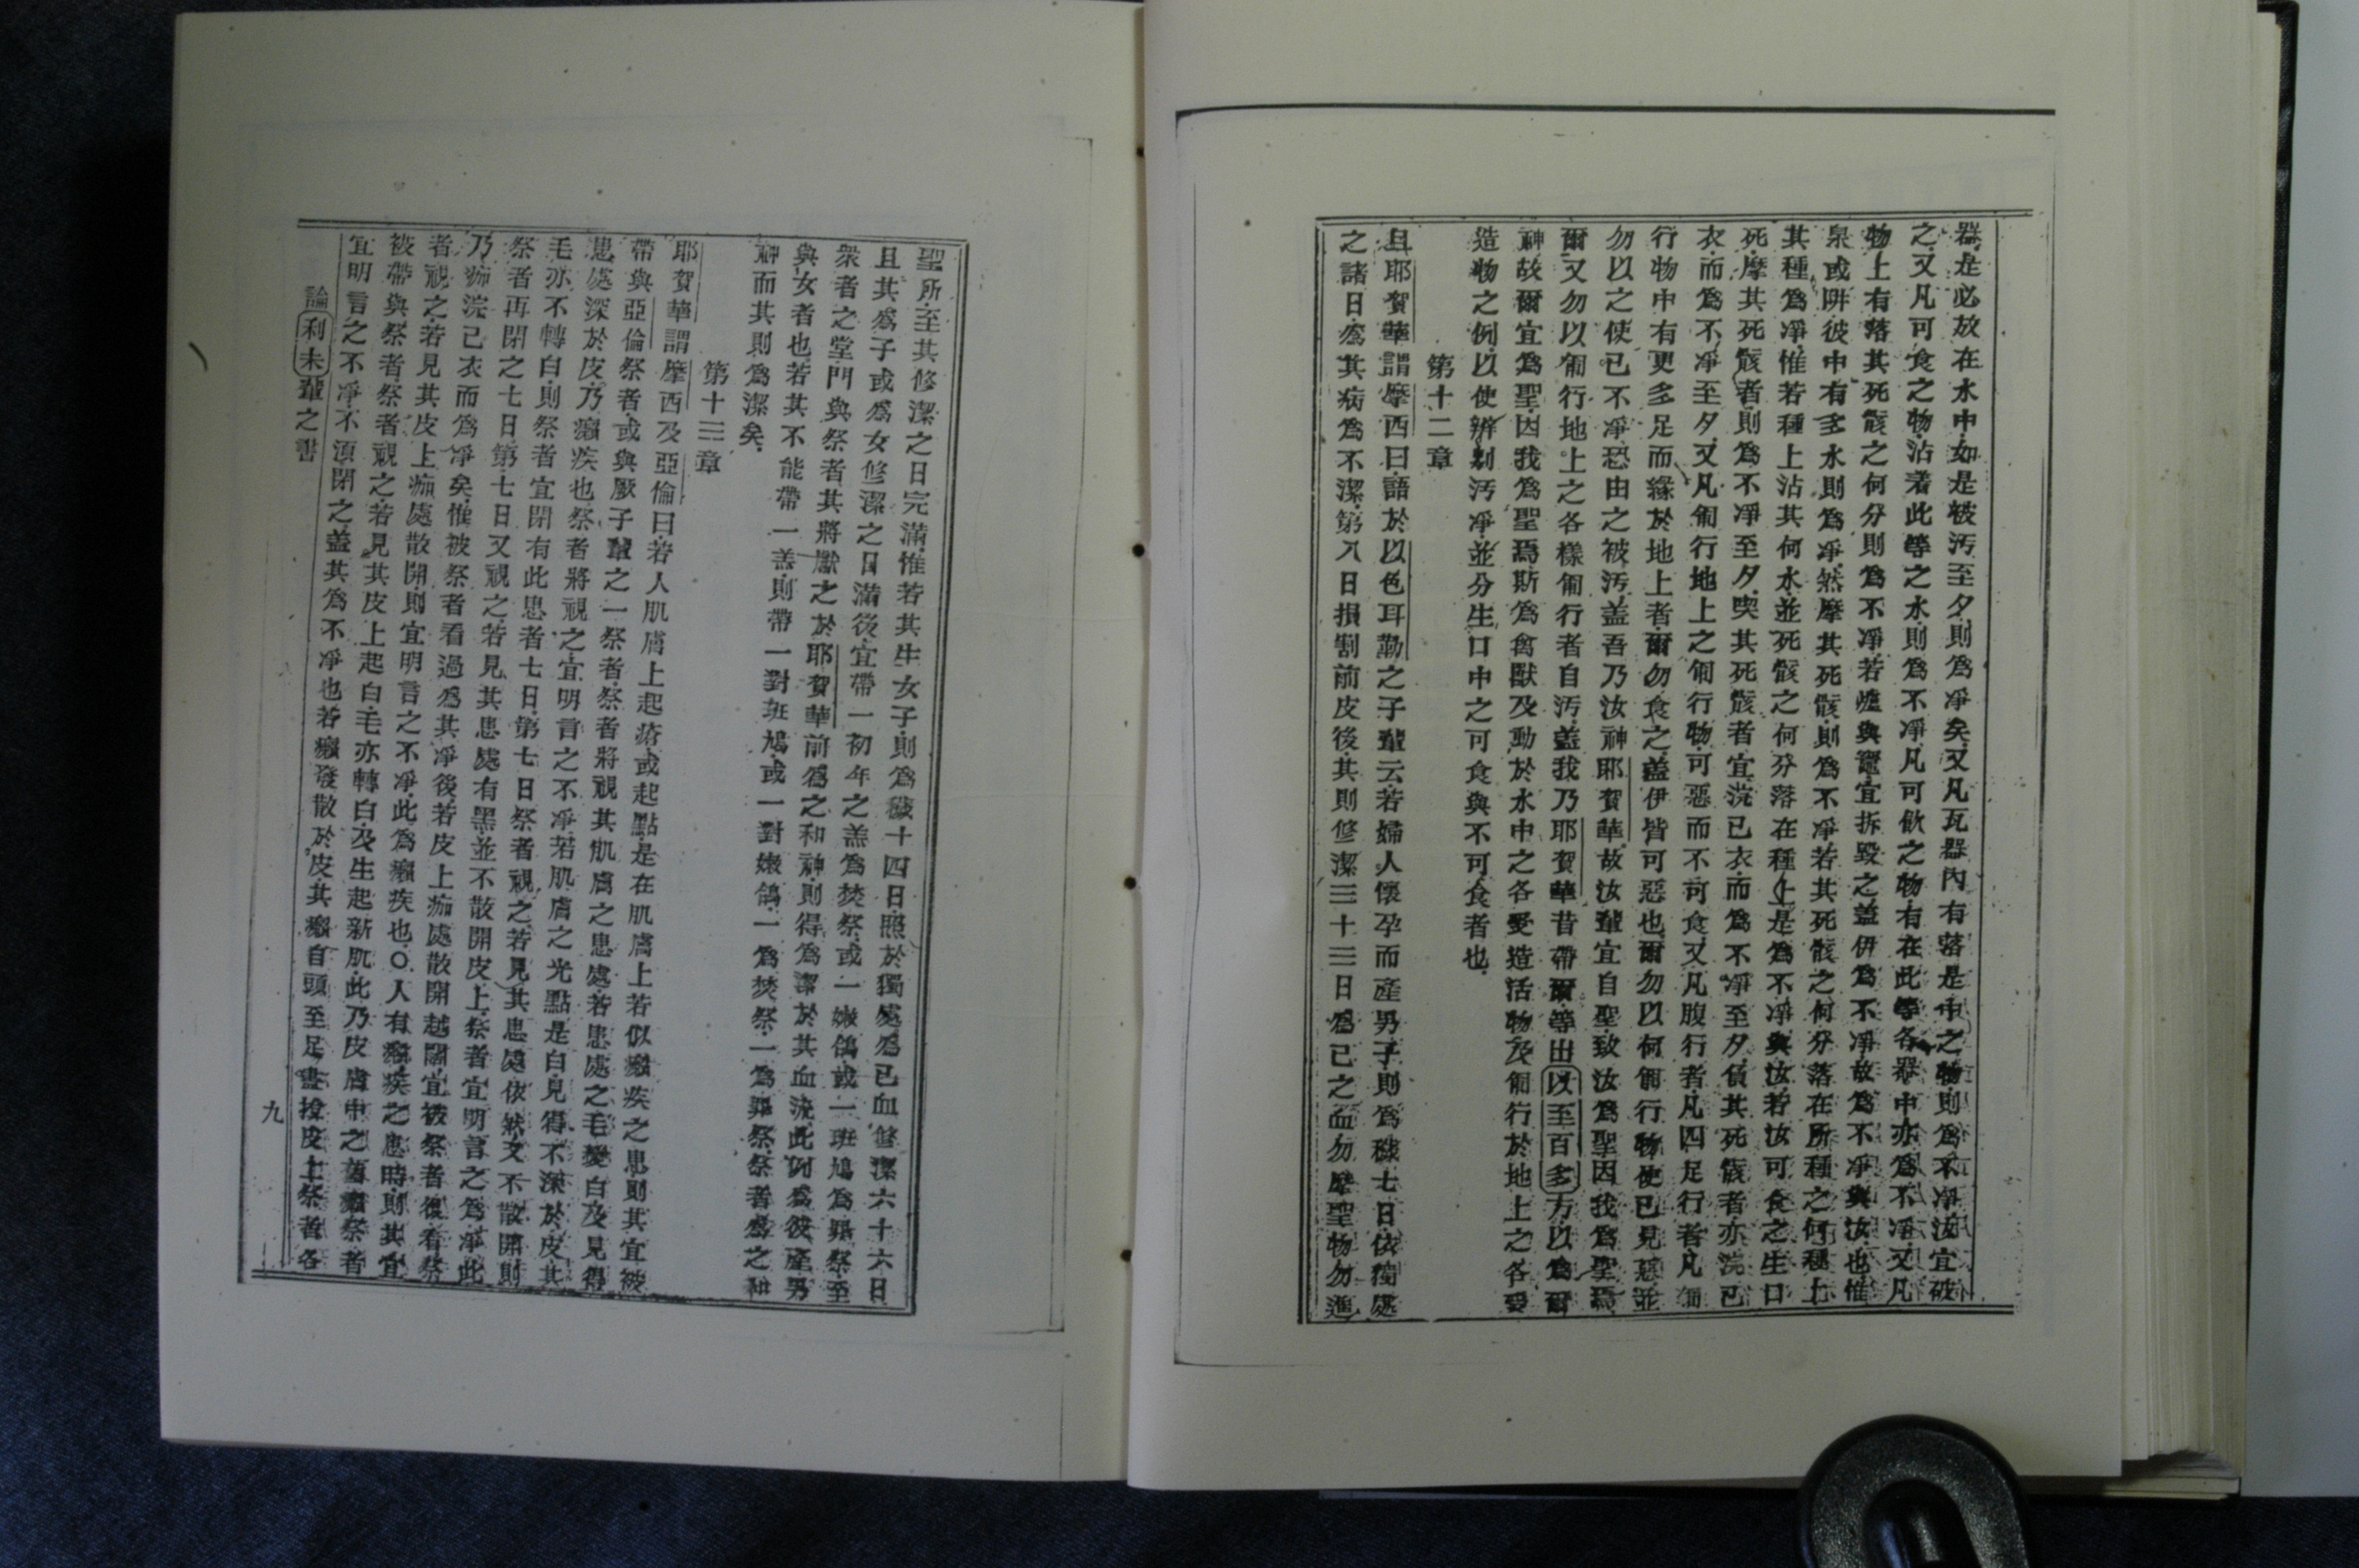 器是必放在水中如是被污至夕則為凈矣又凡瓦器內有落是中之物則為不凈汝宜破
之又凡可食之物沾着此等之水則為不凈凡可飲之物有在此等各器中亦為不凈又凡
物上有落其死骸之何分則為不凈若爐與竈宜拆毀之蓋伊為不凈故為不凈與汝也惟
泉或阱彼中有多水則為凈然摩其死骸則為不凈若其死骸之何分落在所種之何種上
其種為凈惟若種上沾其何水並死骸之何分落在種上是為不凈與汝若汝可食之生口
死摩其死骸者則為不凈至夕喫其死骸者宜浣已衣而為不凈至夕負其死骸者亦浣已
衣而為不凈至夕又凡匍行地上之匍行物可惡而不可食又凡腹行者凡四足行者凡匍
行物中有更多足而緣於地上者爾勿食之蓋伊皆可惡也爾勿以何匍行物使已見惡並
勿以之使已不凈恐由之被污蓋吾乃汝神耶賀華故汝輩宜自聖致汝為聖因我為聖焉
爾又勿以匍行地上之各樣匍行者自污蓋我乃耶賀華昔帶爾等出以至百多方以為爾
神故爾宜為聖因我為聖焉斯為禽獸及動於水中之各受造活物及匍行於地上之各受
造物之例以使辨別污凈並分生口中之可食與不可食者也
第十二章
且耶賀華謂摩西曰語於以色耳勒之子輩云若婦人懷孕而產男子則為穢七日依獨處
之諸日為其病為不潔第八日損割前皮後其則修潔三十三日為已之血勿摩聖物勿進
聖所至其修潔之日完滿惟若其生女子則為穢十四日照於獨處為已血修潔六十六日
且其為子或為女修潔之日滿後宜帶一初年之羔為焚祭或一嫩鴿或一班鳩為罪祭至
衆者之堂門與祭者其將獻之於耶賀華前為之和神則得為潔於其血流此例為彼產男
與女者也若其不能帶一羔則帶一對班鳩或一對嫩鴿一為焚祭一為罪祭祭者為之和
神而其則為潔矣
第十三章
耶賀華謂摩西及亞倫曰若人肌膚上起瘡或起點是在肌膚上若似癩疾之患則其宜被
帶與亞倫祭者或與厥子輩之一祭者祭者將視其肌膚之患處若患處之毛變白及見得
患處深於皮乃癩疾也祭者將視之宜明言之不凈若肌膚之光點是白見得不深於皮其
毛亦不轉白則祭者宜閉有此患者七日第七日祭者視之若見其患處依然又不散開則
祭者再閉之七日第七日又視之若見其患處有黑並不散開皮上祭者宜明言之為凈此
乃痂浣已衣而為凈矣惟被祭者看過為其凈後若皮上痂處散開越闊宜被祭者復看祭
者視之若見其皮上痂處散開則宜明言之不凈此為癩疾也○人有癩疾之患時則其宜
被帶與祭者祭者視之若見其皮上起白毛亦轉白及生起新肌此乃皮膚中之舊癩祭者
宜明言之不凈不須閉之蓋其為不凈也若癩發散於皮其癩自頭至足盡掩皮上祭者各
論利未輩之書
九